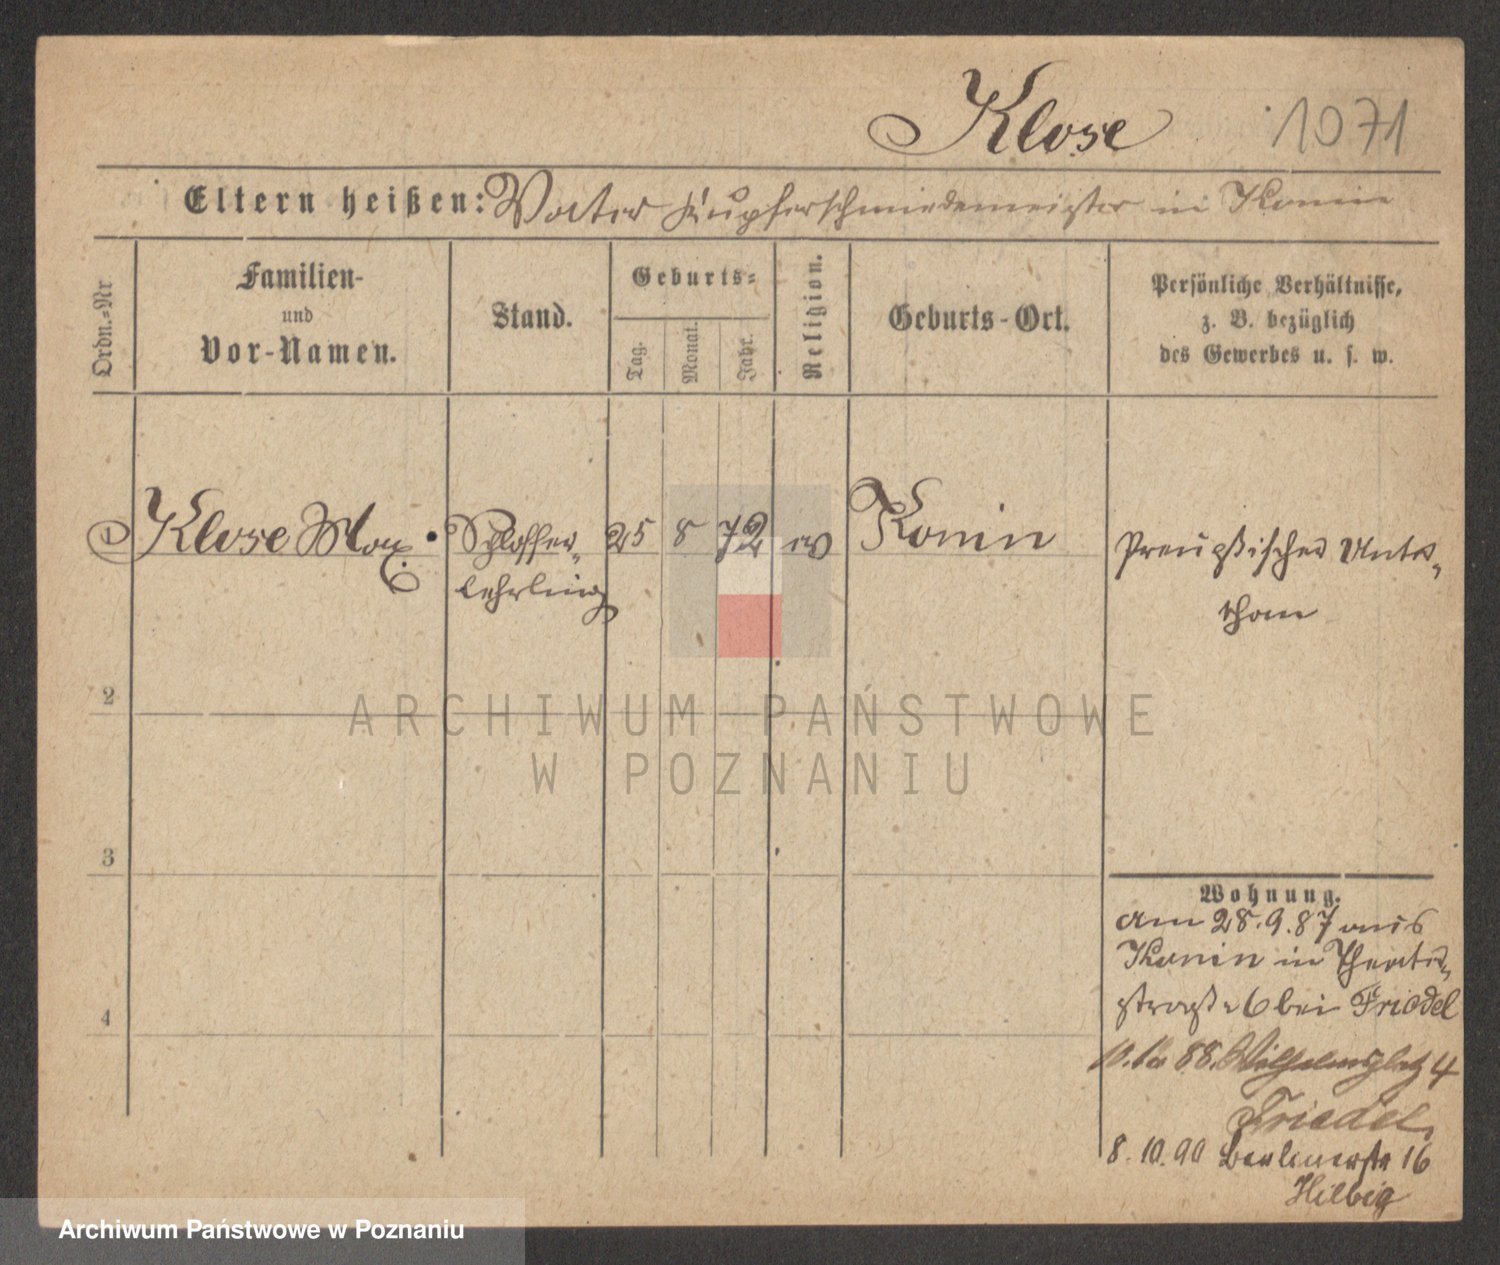 Klose 1071
Eltern heißen: Vater Kupferschmiedemeister in Konin
Ordn.-Nr
Familien-
und
Vor-Namen.
Stand.
Geburts-
Tag.
Monat.
Jahr.
Religion.
Geburts-Ort.
Persönliche Verhältnisse,
z. B. bezüglich
des Gewerbes u. s. w.
1 Klose Max. Schlosser- 25 8 72 ev Konin Preußischer Unter-
lehrling than
2
ARCHIWUM PAŃSTWOWE
W POZNANIU
3
Wohnung.
am 28.9.87 aus
Konin in Theater-
straße 6 bei Friedel
88. Wilhelmsplatz 4
Friedel
8.10.90 Berlinerstr 16
Hilbig
4
Archiwum Państwowe w Poznaniu